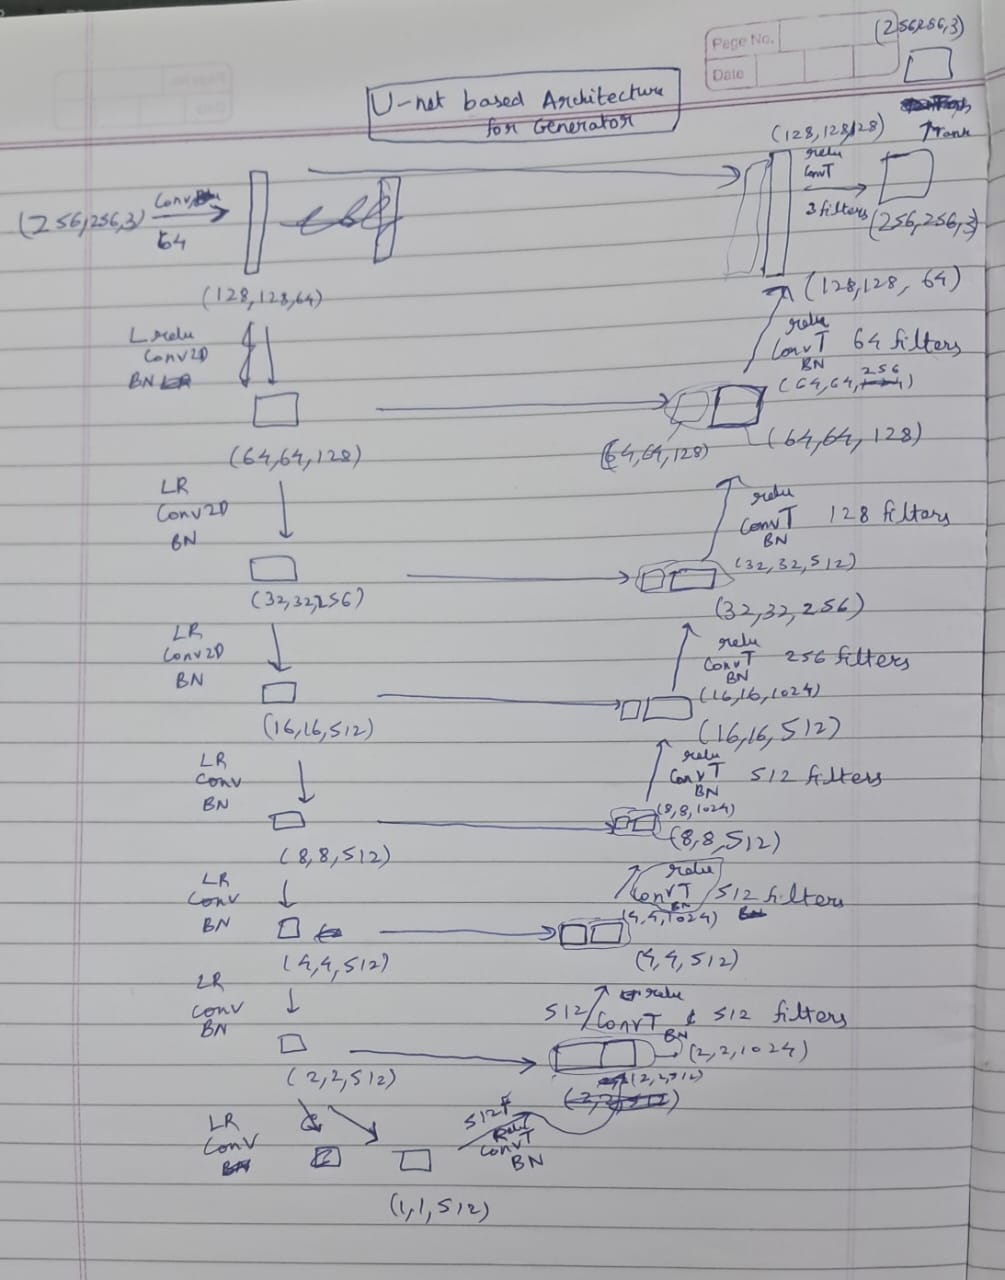 (256,256,3)
Page No.
Date
U-net based Architecture
for Generator
(128,128,128)
↑Tanh
relu
ConvT
3 filters
(256,256,3)
(256,256,3) Conv
64
(128,128,64)
(128,128, 64)
L relu
Conv2D
BN
relu
ConvT 64 filters
BN
(64,64,256)
(64,64,128)
(64,64,128)
(64,64,128)
LR
Conv2D
BN
relu
ConvT 128 filters
BN
(32,32,512)
(32,32,256)
(32,32,256)
LR
Conv2D
BN
relu
ConvT 256 filters
BN
(16,16,1024)
(16,16,512)
(16,16,512)
LR
Conv
BN
relu
ConvT 512 filters
BN
(8,8,1024)
(8,8,512)
(8,8,512)
LR
Conv
BN
relu
ConvT 512 filters
BN
(4,4,1024)
(4,4,512)
(4,4,512)
LR
Conv
BN
relu
512 ConvT 512 filters
BN
(2,2,1024)
(2,2,512)
(2,2,512)
(2,2,512)
LR
Conv
BN
512F
Relu
ConvT
BN
(1,1,512)